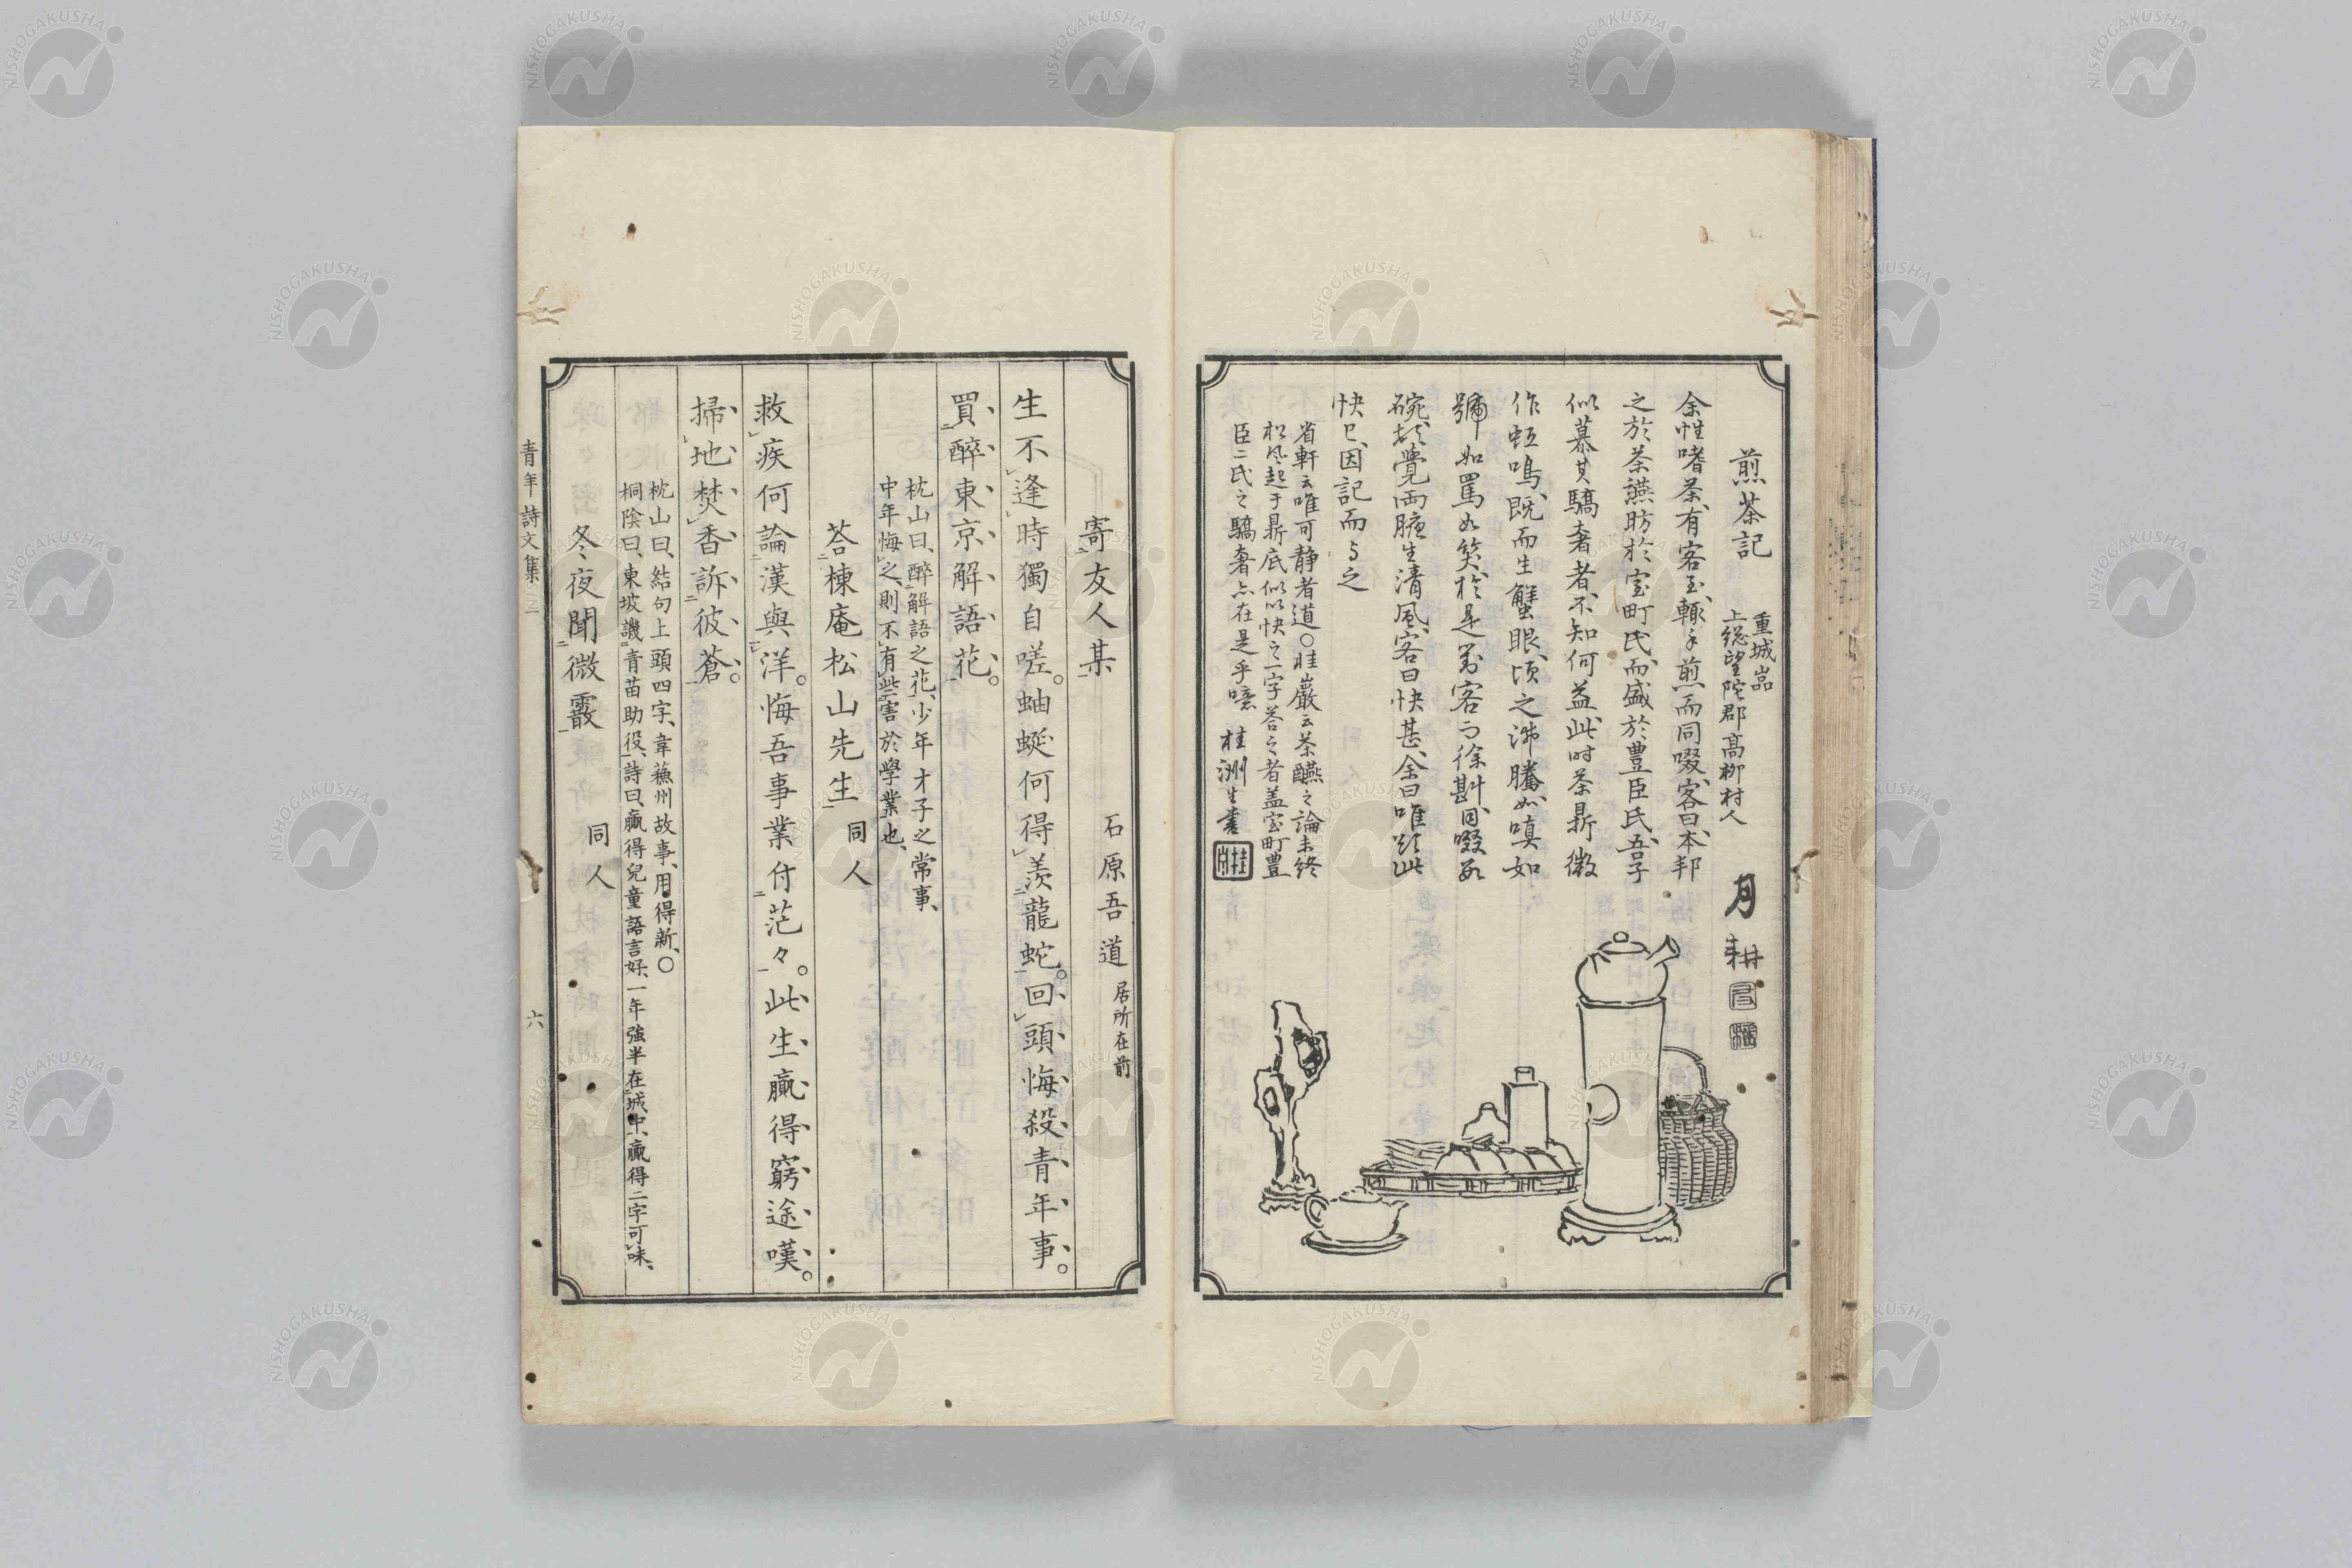 煎茶記
重城嵓
上総望陀郡高柳村人
月耕
余性嗜茶、有客至、輙手煎而同啜、客曰、本邦
之於茶讌昉於室町氏、而盛於豊臣氏、吾子
似慕其驕奢者、不知何益、此時茶鼎微
作蚯鳴、既而生蟹眼、頃之沸騰、如嗔如
號如罵如笑、於是対客而徐斟、同啜数
碗、頓覚両腋生清風、客曰快甚、余曰唯以此
快已、因記而与之
省軒云唯可静者道○桂巌云茶醼之論未終
松風起于鼎底似以快之一字答之者盖室町豊
臣二氏之驕奢亦在是乎噫
桂洲生書
寄友人某
石原吾道 居所在前
生不逢時獨自嗟。蚰蜒何得羨龍蛇。回頭、悔殺青年事。
買醉東京解語花。
枕山曰、醉解語之花、少年才子之常事、
中年悔之、則不有些害於學業也、
荅棟庵松山先生 同人
救疾何論漢與洋。悔吾事業付茫々。此生贏得窮途嘆。
掃地焚香訴彼蒼。
枕山曰、結句上頭四字、韋蘓州故事、用得新、○
桐陰曰、東坡譏青苗助役、詩曰、贏得兒童語言好、一年強半在城中、贏得二字可味、
冬夜聞微霰 同人
青年詩文集 二 六
NISHOGAKUSHA